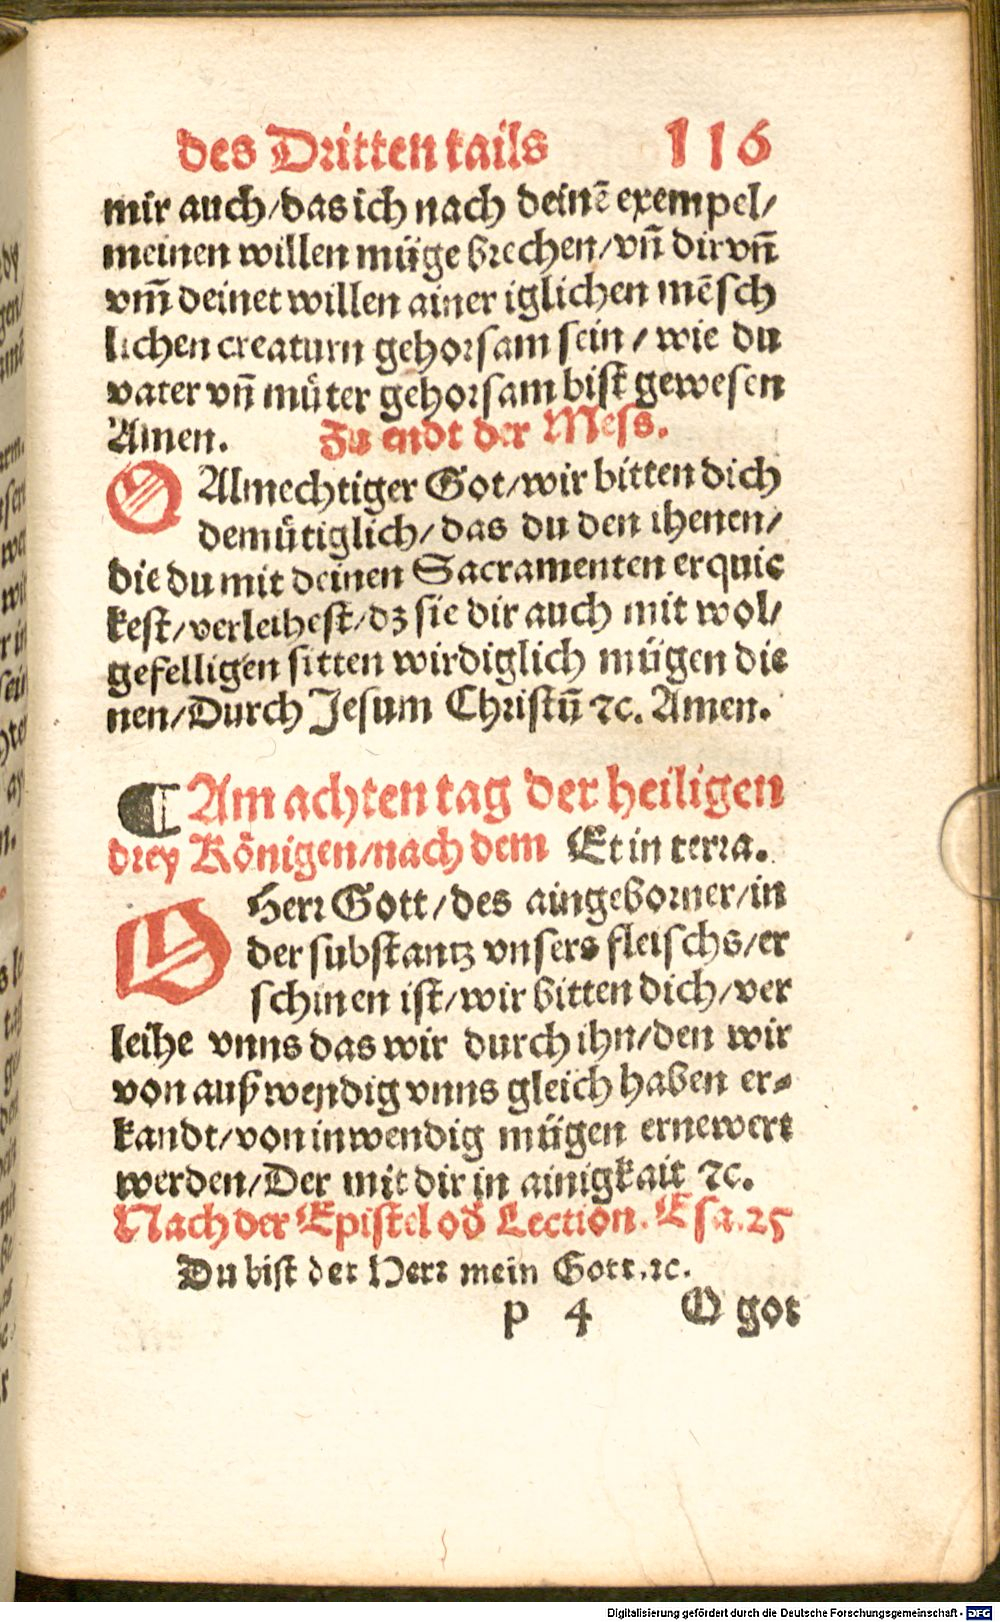 des Dritten tails 116
mir auch/das ich nach deinẽ exempel/
meinen willen müge brechen/vñ dir vñ
vm̃ deinet willen ainer iglichen mẽsch
lichen creaturn gehorsam sein/wie du
vater vñ můter gehorsam bist gewesen
Amen. Zu endt der Mess.
O Almechtiger Got/wir bitten dich
demütiglich/das du den ihenen/
die du mit deinen Sacramenten erquic
kest/verleihest/dz sie dir auch mit wol/
gefelligen sitten wirdiglich mügen die
nen/Durch Jesum Christũ ⁊c. Amen.
¶ Am achten tag der heiligen
drey Königen/nach dem Et in terra.
O Herr Gott/des aingeborner/in
der substantz vnsers fleischs/er
schinen ist/wir bitten dich/ver
leihe vnns das wir durch ihn/den wir
von außwendig vnns gleich haben er-
kandt/von inwendig mügen ernewert
werden/Der mit dir in ainigkait ⁊c.
Nach der Epistel od̕ Lection. Esa.25
Du bist der Herr mein Gott.⁊c.
p 4 O got
Digitalisierung gefördert durch die Deutsche Forschungsgemeinschaft - DFG